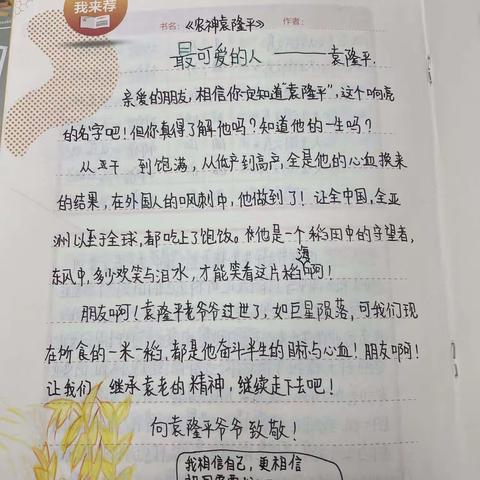 我来荐
书名：《农神袁隆平》 作者：
最可爱的人 —— 袁隆平.
亲爱的朋友，相信你一定知道“袁隆平”，这个响亮
的名字吧！但你真得了解他吗？知道他的一生吗？
从 干 到饱满，从低产到高产，全是他的心血换来
的结果，在外国人的讽刺中，他做到了！让全中国，全亚
洲以至于全球，都吃上了饱饭。他是一个稻田中的守望者，
东风中，多少欢笑与泪水，才能笑看这片稻海啊！
朋友啊！袁隆平老爷爷过世了，如巨星陨落，可我们现
在所食的一米一稻，都是他奋斗半生的目标与心血！朋友啊！
让我们 继承袁老的精神，继续走下去吧！
向袁隆平爷爷致敬！
我相信自己，更相信